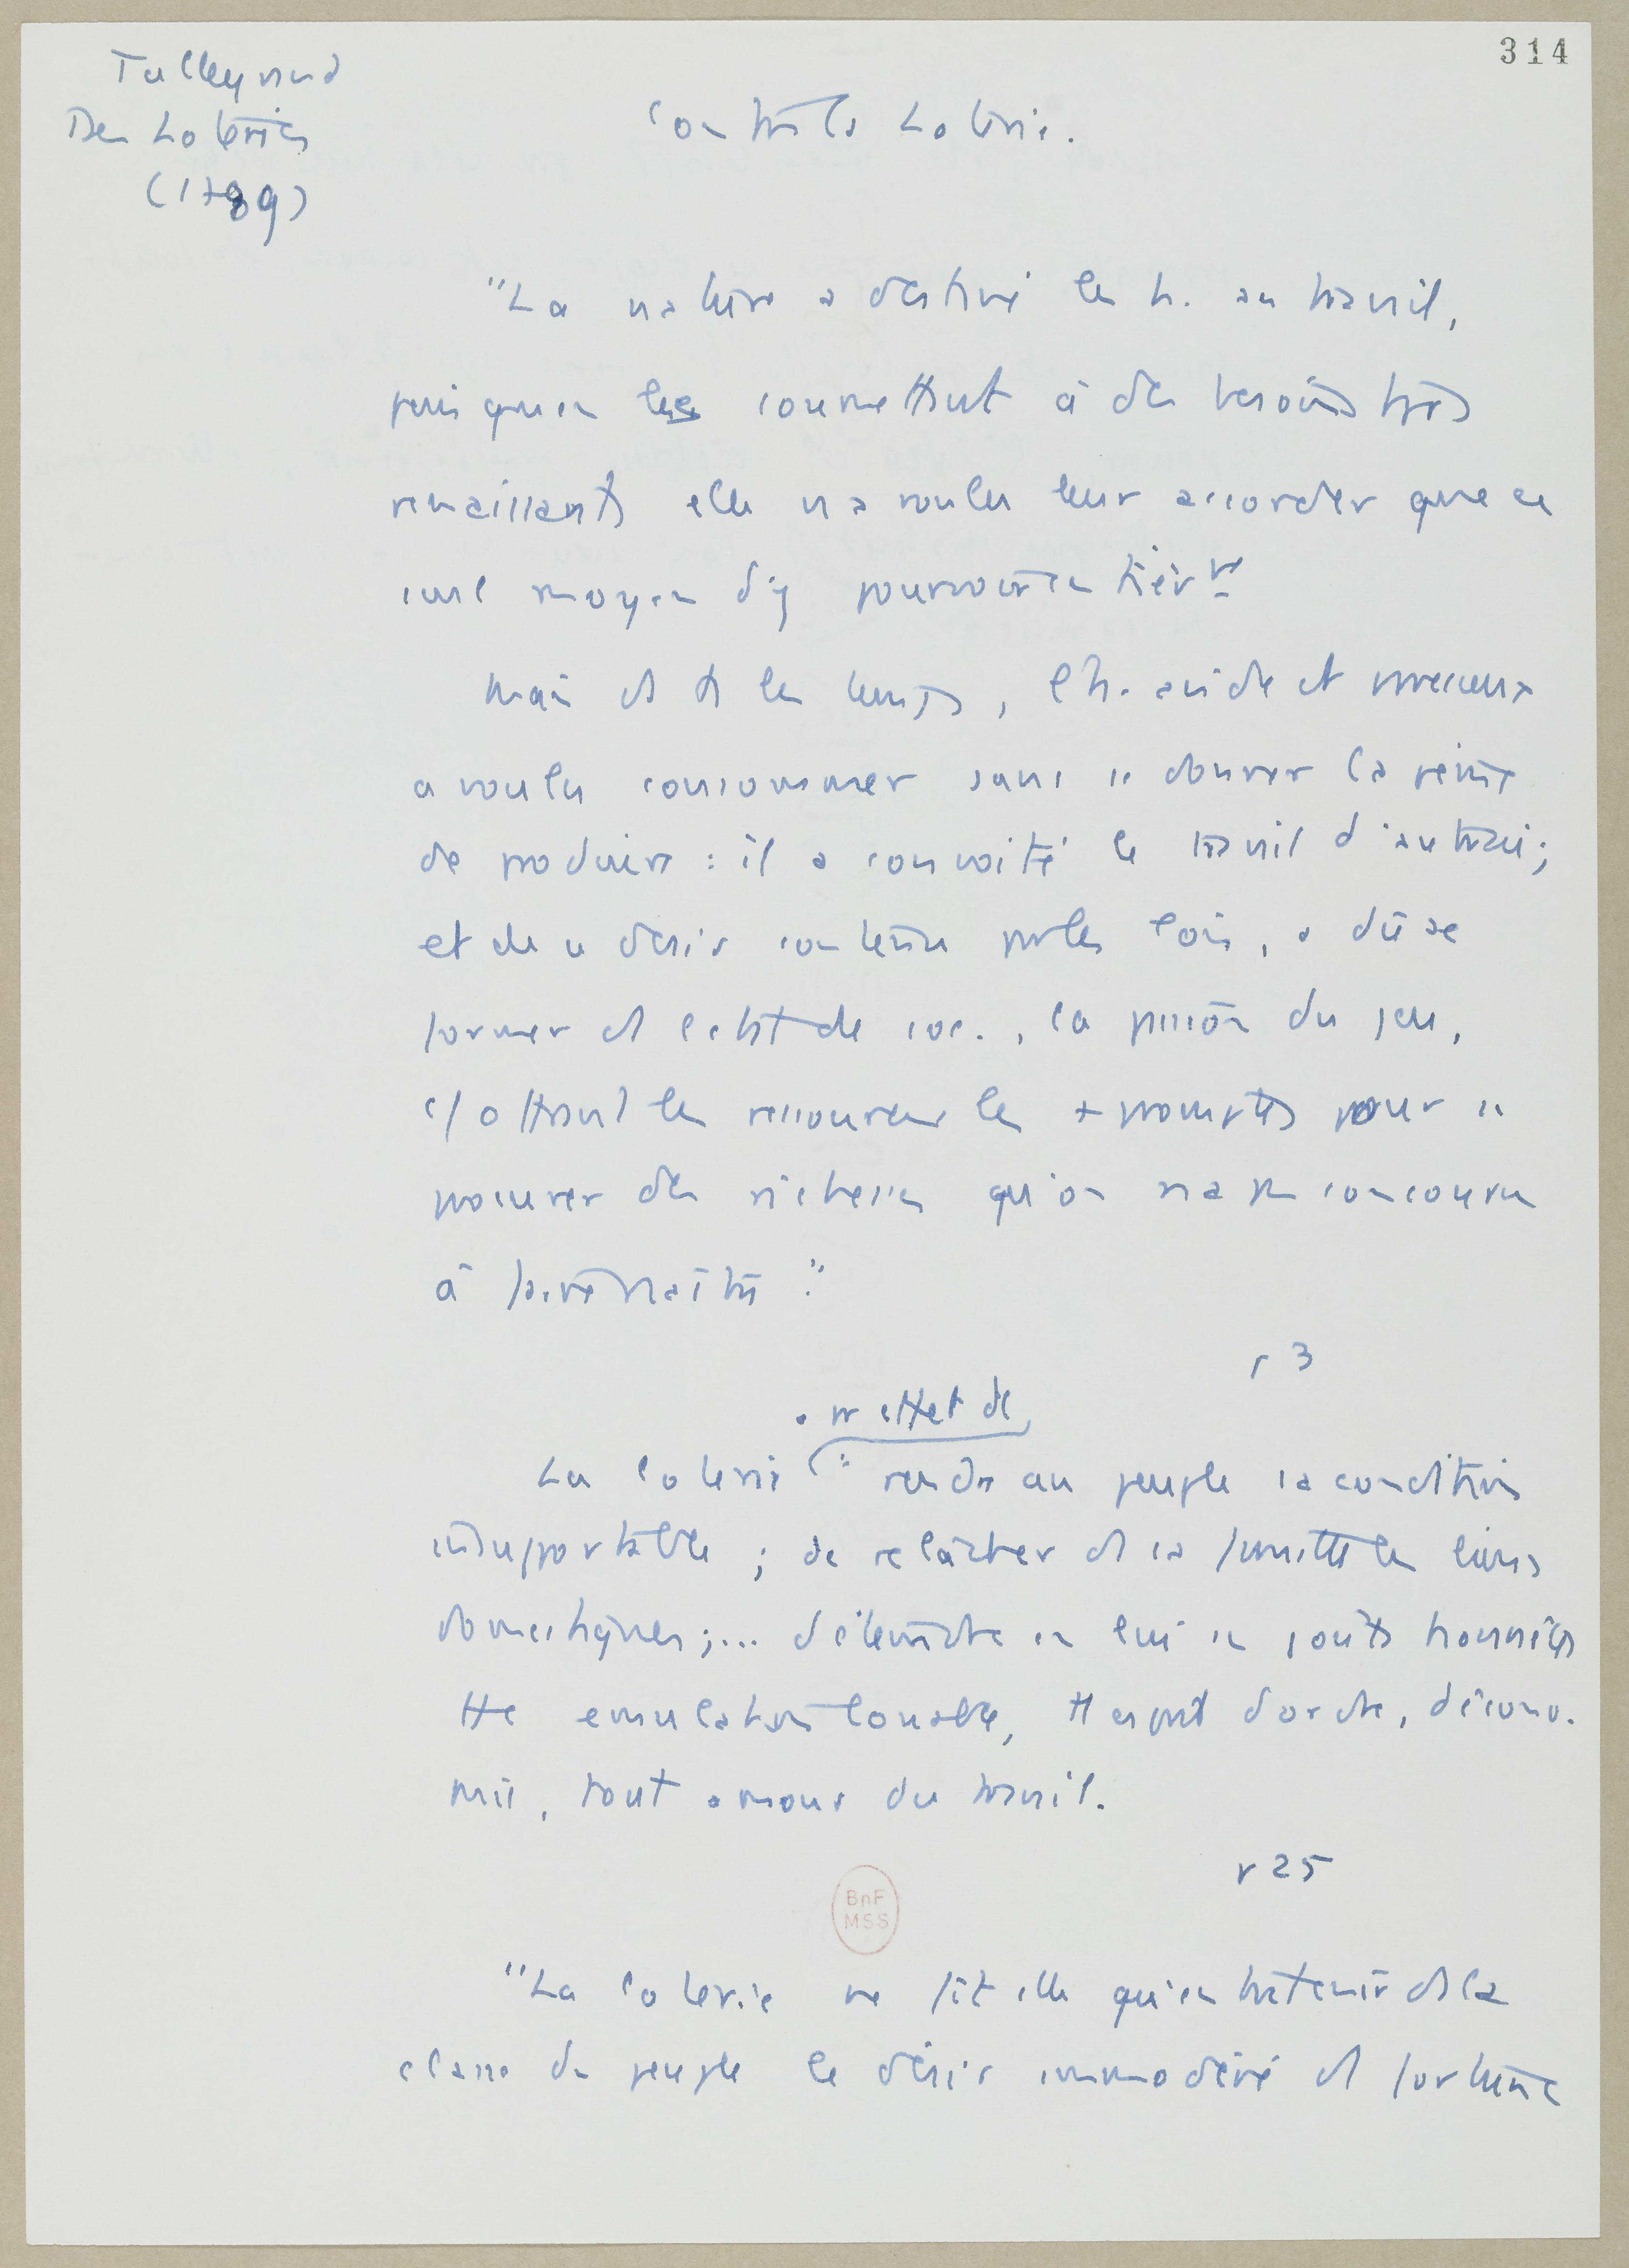 314
Talleyrand
Des Loteries
(1789)
Contre la Loterie.
"La nature a destiné les h. au travail,
puisqu'en les soumettant à des besoins très
renaissants elle n'a voulu leur accorder que ce
seul moyen d'y pourvoir
Mais ds ts les temps, l'h. avide et
a voulu consommer sans se donner la peine
de produire : il a convoité le travail d'autrui;
et de ce désir contenu par les lois, a dû se
former ds l'état de soc., la passion du jeu,
c/ offrant les ressources les + promptes pour se
procurer des richesses qu'on n'a pas concouru
à faire naître."
p 3
a pr effet de
La loterie " rendre au peuple sa condition
insupportable ; de relâcher ds sa famille les liens
domestiques;... d'éteindre en lui les goûts honnêtes
tte émulation louable, tt esprit d'ordre, d'écono.
mie, tout amour du travail.
p 25
BnF
MSS
"La loterie ne fît elle qu'entretenir ds la
classe du peuple le désir immodéré de fortune